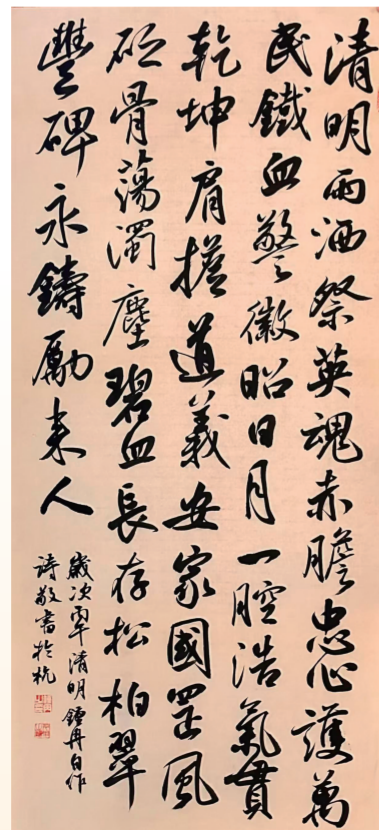 清明雨洒祭英魂赤膽忠心護萬
民鐵血警徽昭日月一腔浩氣貫
乾坤肩擔道義安家國罡風
砭骨蕩濁塵碧血長存松柏翠
豐碑永鑄勵来人
歲次丙午清明鍾丹自作
詩敬書於杭